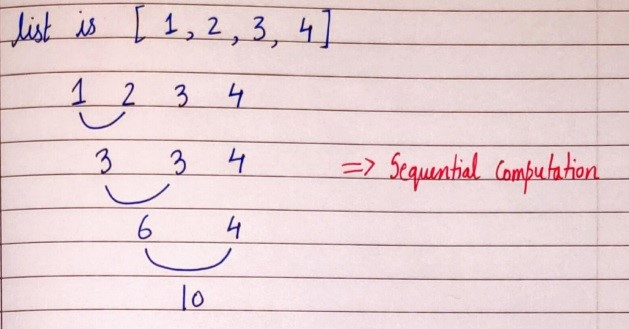 list is [ 1, 2, 3, 4 ]
1 2 3 4
3 3 4 => Sequential Computation
6 4
10